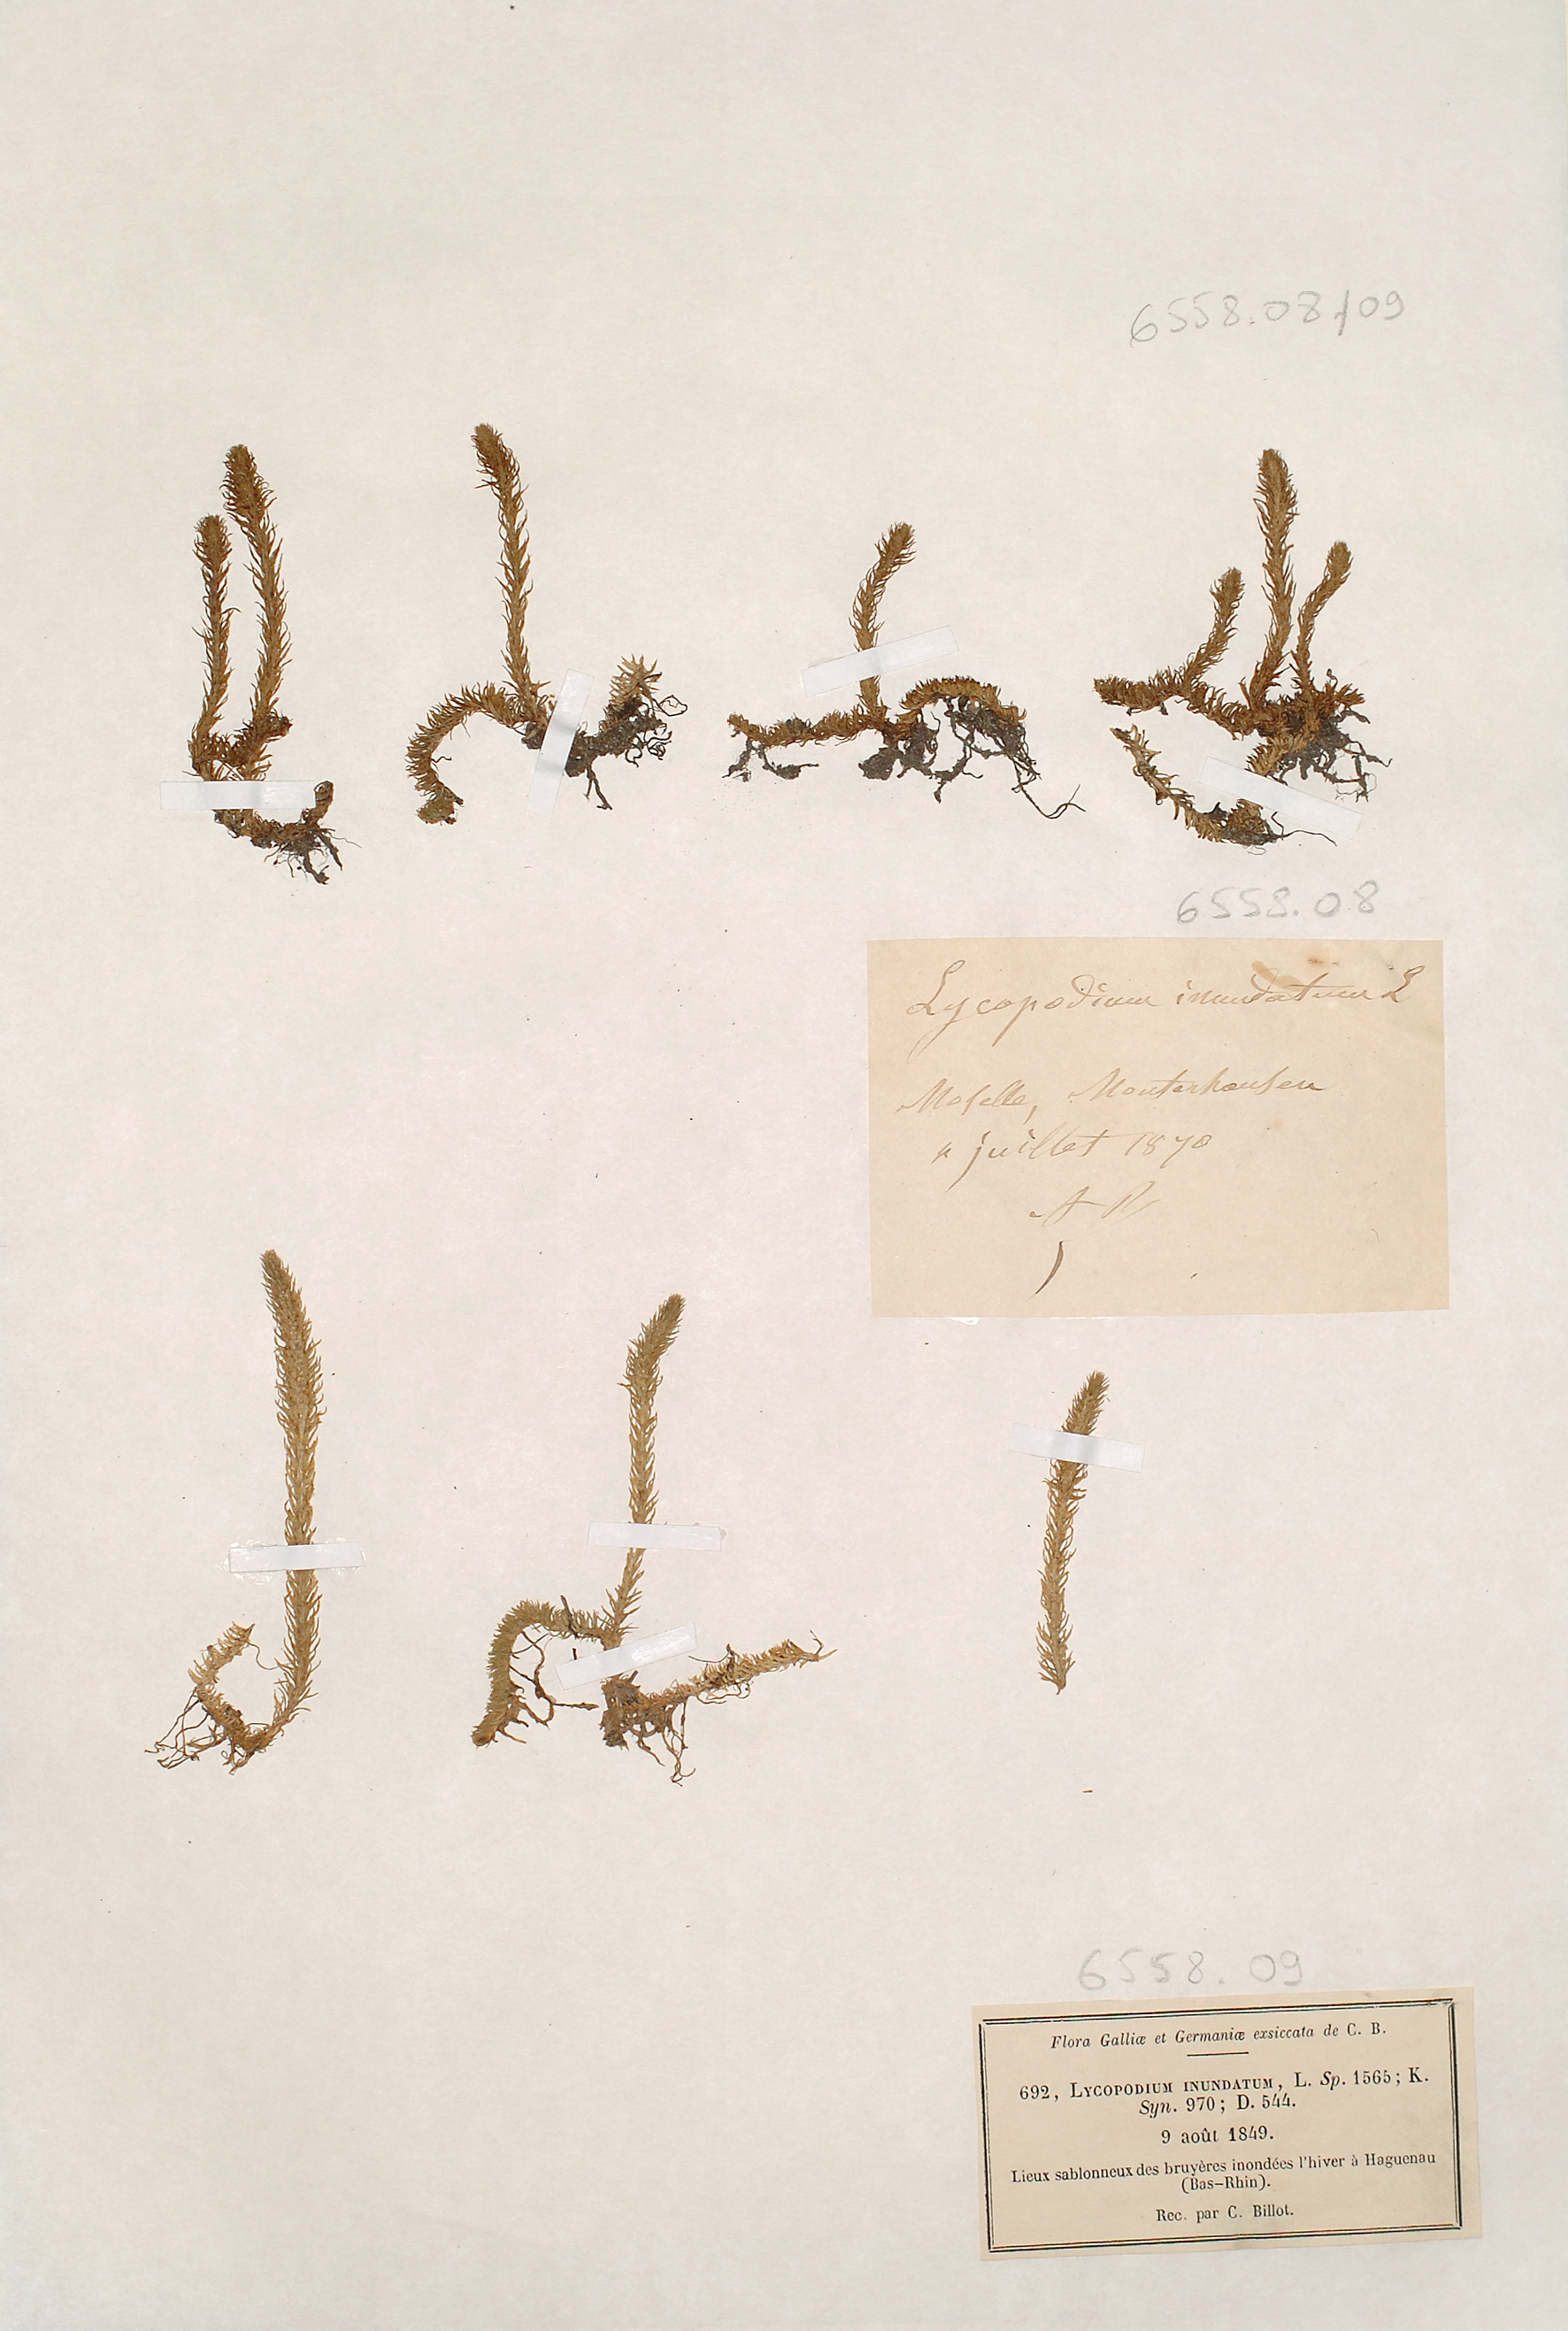 6558.08/09
6558.08
Lycopodium inundatum L
Moselle, Mouterhausen
juillet 1870
A R
6558.09
Flora Galliæ et Germaniæ exsiccata de C. B.
692, LYCOPODIUM INUNDATUM, L. Sp. 1565; K.
Syn. 970; D. 544.
9 août 1849.
Lieux sablonneux des bruyères inondées l'hiver à Haguenau
(Bas-Rhin).
Rec. par C. Billot.